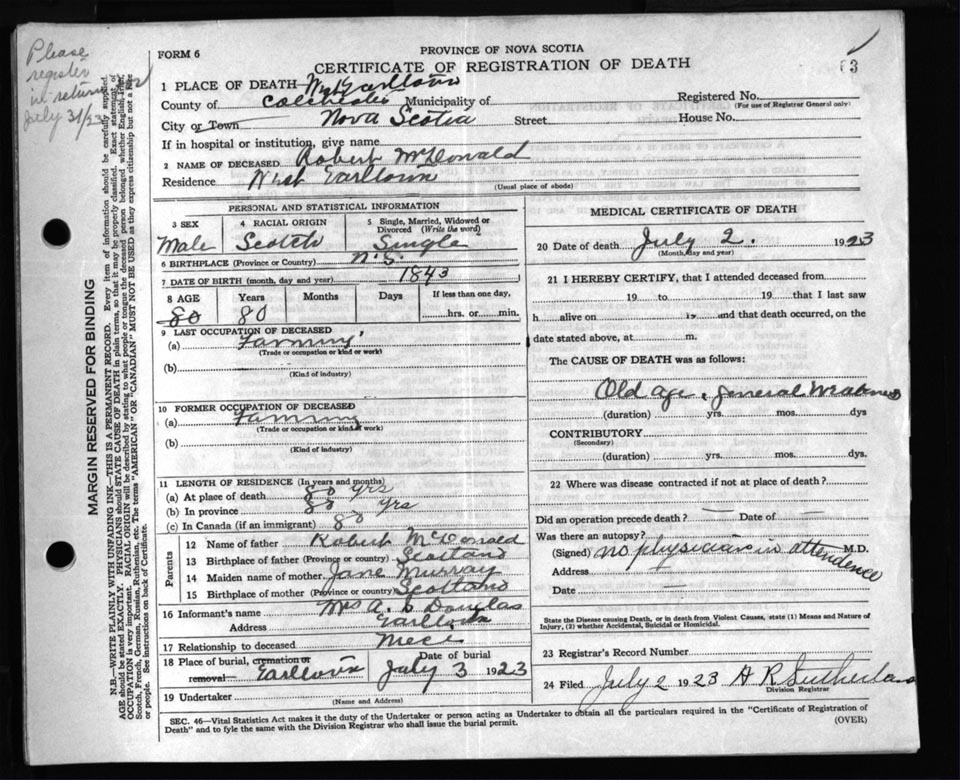 Please
register
in return
July 31/23
FORM 6
PROVINCE OF NOVA SCOTIA
CERTIFICATE OF REGISTRATION OF DEATH
3
1 PLACE OF DEATH West Earltown
County of Colchester Municipality of
Registered No.
(For use of Registrar General only)
City or Town Nova Scotia Street: House No.
If in hospital or institution, give name
2 NAME OF DECEASED Robert McDonald
Residence West Earltown
(Usual place of abode)
PERSONAL AND STATISTICAL INFORMATION
3 SEX
Male
4 RACIAL ORIGIN
Scotch
5 Single, Married, Widowed or Divorced (Write the word)
Single
6 BIRTHPLACE (Province or Country) N.S.
7 DATE OF BIRTH (month, day and year) 1843
8 AGE Years Months Days If less than one day,
80 80 hrs. or min.
9 LAST OCCUPATION OF DECEASED
(a) Farming
(Trade or occupation or kind or work)
(b)
(Kind of industry)
10 FORMER OCCUPATION OF DECEASED
(a) Farming
(Trade or occupation or kind of work)
(b)
(Kind of industry)
11 LENGTH OF RESIDENCE (In years and months)
(a) At place of death 80 yrs
(b) In province 80 yrs
(c) In Canada (if an immigrant) 80
Parents
12 Name of father Robert McDonald
13 Birthplace of father (Province or country) Scotland
14 Maiden name of mother Jane Murray
15 Birthplace of mother (Province or country) Scotland
16 Informant's name Mrs A. Douglas
Address Earltown
17 Relationship to deceased Niece
18 Place of burial, cremation or removal Earltown
Date of burial July 3 1923
19 Undertaker
(Name and Address)
MEDICAL CERTIFICATE OF DEATH
20 Date of death July 2. 1923
(Month, day and year)
21 I HEREBY CERTIFY, that I attended deceased from
19 to 19 that I last saw
h alive on 19 and that death occurred, on the
date stated above, at m.
The CAUSE OF DEATH was as follows:
Old age & general Weakness
(duration) yrs. mos. dys
CONTRIBUTORY
(Secondary)
(duration) yrs. mos. dys.
22 Where was disease contracted if not at place of death?
Did an operation precede death? — Date of —
Was there an autopsy?
(Signed) no physician in attendence M.D.
Address
Date —
State the Disease causing Death, or in death from Violent Causes, state (1) Means and Nature of
Injury, (2) whether Accidental, Suicidal or Homicidal.
23 Registrar's Record Number
24 Filed July 2 1923 A R Sutherland
Division Registrar
SEC. 46—Vital Statistics Act makes it the duty of the Undertaker or person acting as Undertaker to obtain all the particulars required in the "Certificate of Registration of
Death" and to fyle the same with the Division Registrar who shall issue the burial permit.
(OVER)
MARGIN RESERVED FOR BINDING
N.B.—WRITE PLAINLY WITH UNFADING INK—THIS IS A PERMANENT RECORD. Every item of information should be carefully supplied.
AGE should be stated EXACTLY. PHYSICIANS should STATE CAUSE OF DEATH in plain terms, so that it may be properly classified. Exact statement of
OCCUPATION is very important. RACIAL ORIGIN will be described by stating to what people or tongue the deceased person belonged whether English, Irish,
Scotch, French, German, Russian, Ruthenian, etc. The terms "AMERICAN" OR "CANADIAN" MUST NOT BE USED as they express citizenship but not a race
or people. See instructions on back of Certificate.